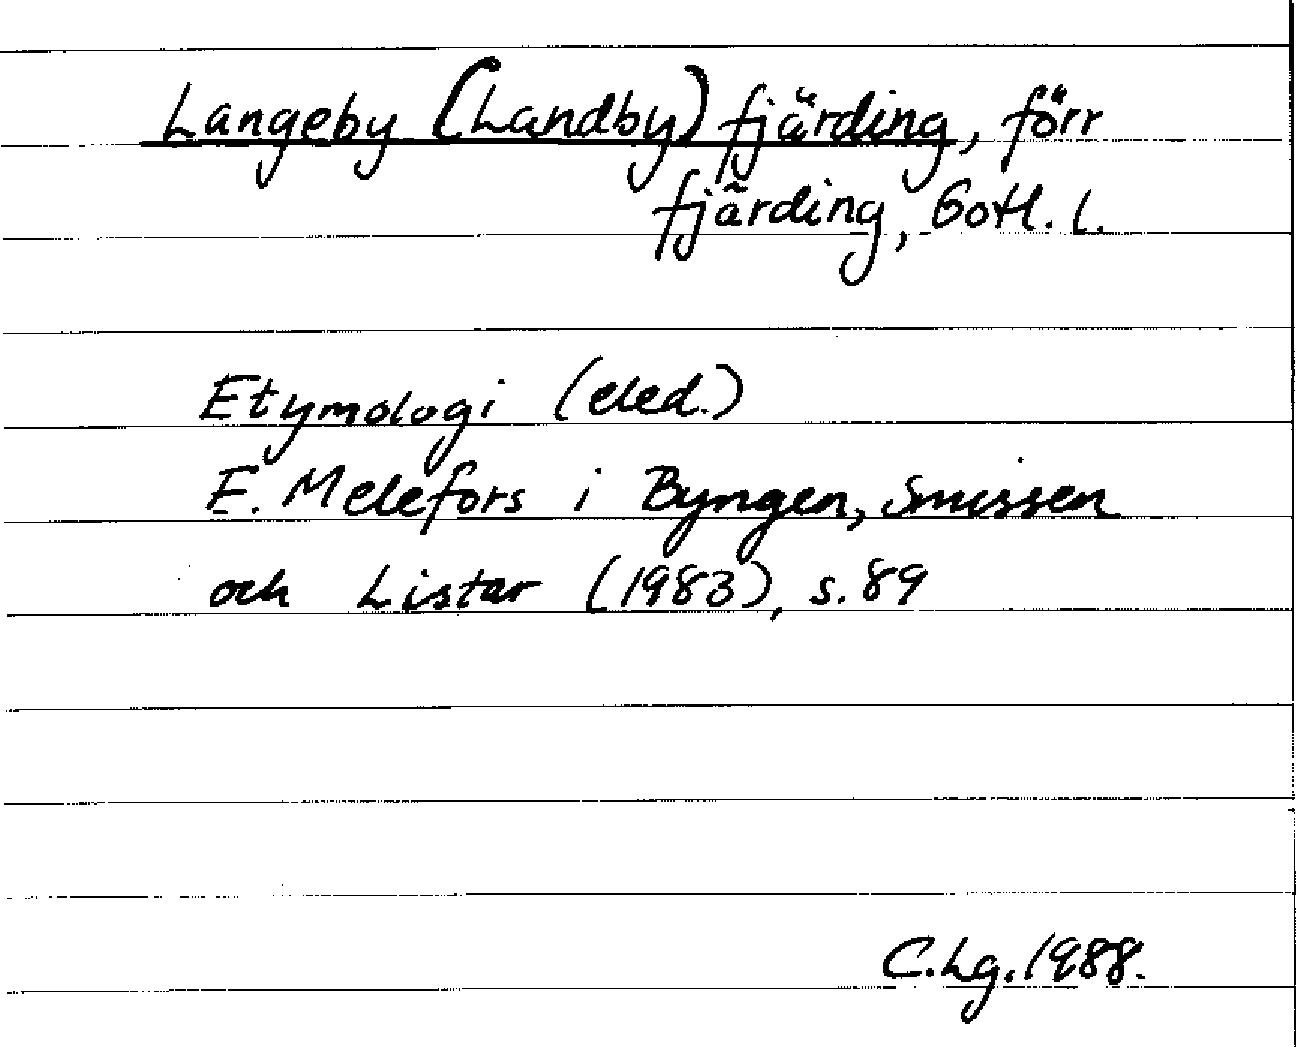 Langeby (Landby) fjärding, förr
fjärding, Gotl. l.
Etymologi (eled.)
E. Melefors i Byngen, Smissen
och Listar (1983), s. 89
C.Lg. 1988.